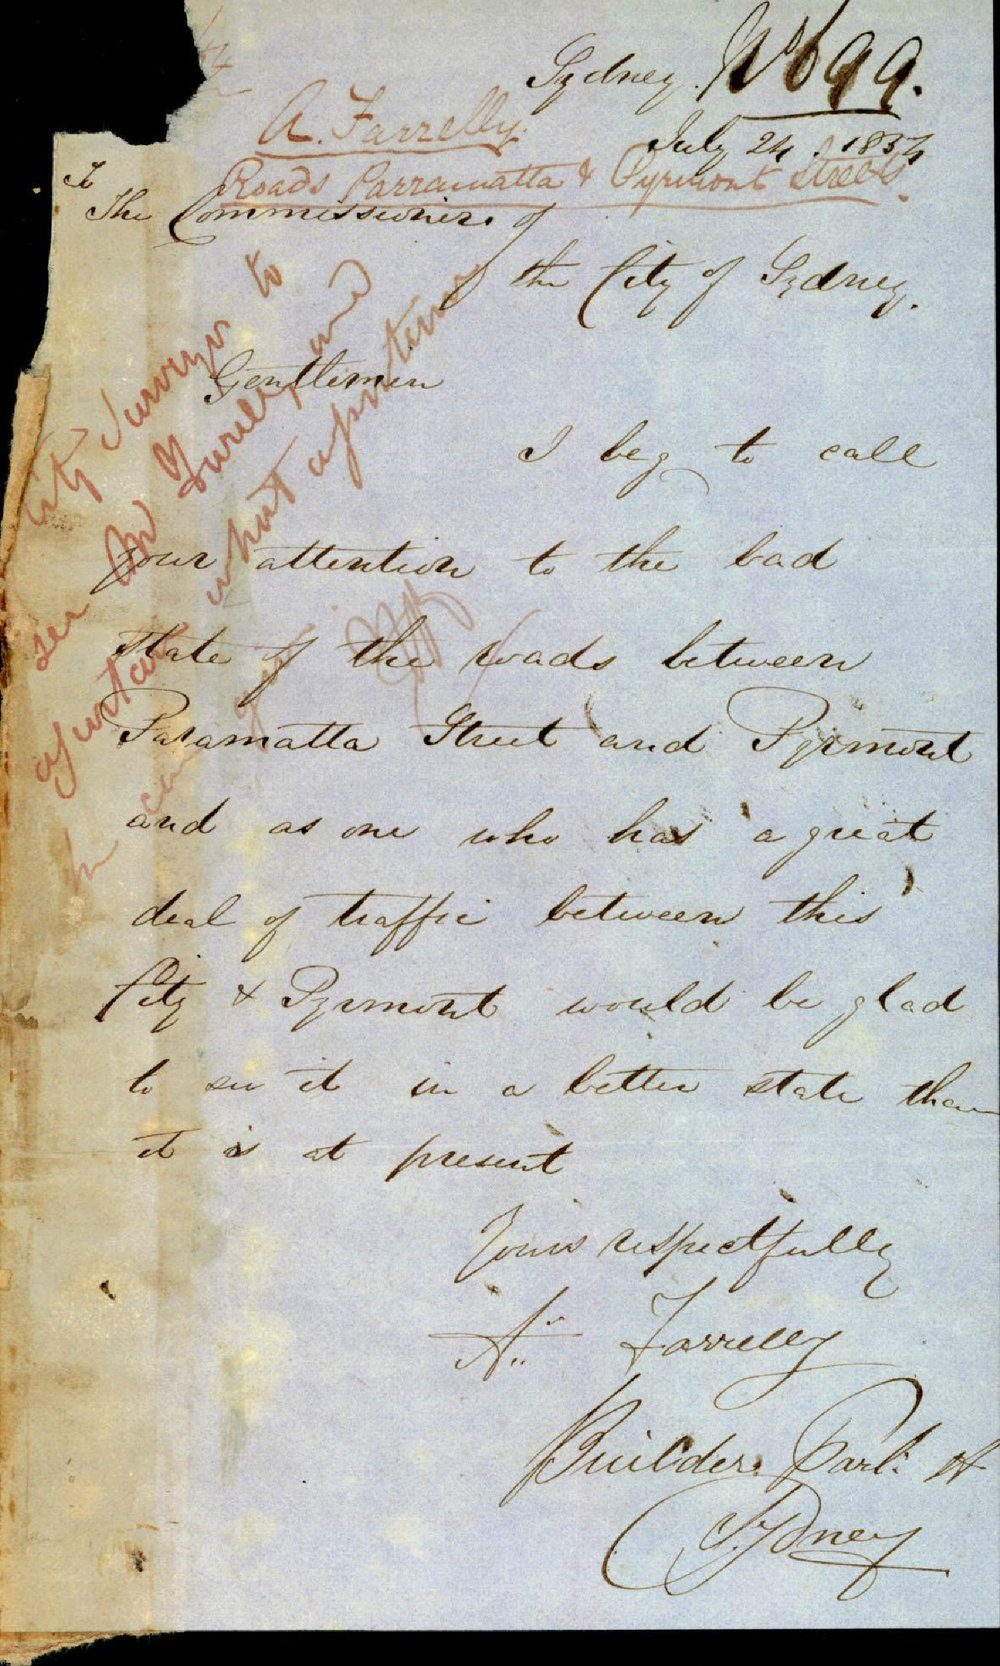 Sydney. No 699.
A. Farrelly.
July 24. 1854
Roads Parramatta & Pyrmont Streets.
To
The Commissioners of
the City of Sydney.
City Surveyor to
see Mr Farrelly and
ascertain what
Gentlemen
I beg to call
your attention to the bad
state of the roads between
Paramatta Street and Pyrmont
and as one who has a great
deal of traffic between this
City & Pyrmont would be glad
to see it in a better state than
it is at present
Yours respectfully
A. Farrelly
Builder. Park St
Sydney